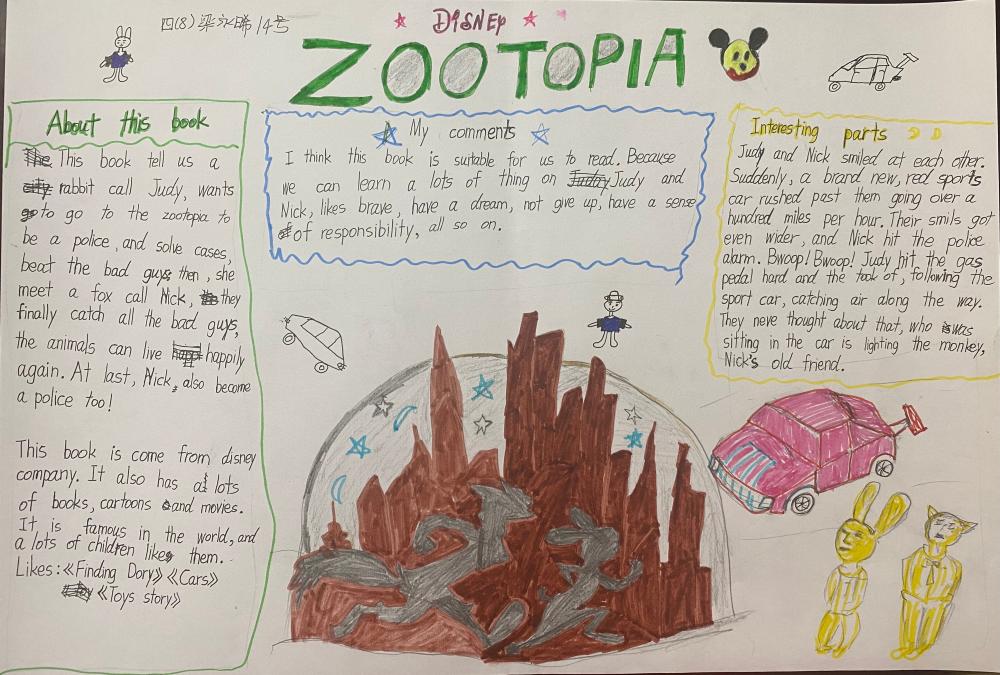 四(8) 梁永晞 14号
DiSNEP
ZOOTOPIA
About this book
This book tell us a
rabbit call Judy, wants
to go to the zootopia to
be a police, and solve cases,
beat the bad guys then, she
meet a fox call Nick, they
finally catch all the bad guys,
the animals can live happily
again. At last, Nick, also become
a police too!
This book is come from disney
company. It also has a lots
of books, cartoons and movies.
It is famous in the world, and
a lots of children likes them.
Likes:《Finding Dory》《Cars》
《Toys story》
My comments
I think this book is suitable for us to read. Because
we can learn a lots of thing on Judy and
Nick, likes brave, have a dream, not give up, have a sense
of responsibility, all so on.
Interesting parts
Judy and Nick smiled at each other.
Suddenly, a brand new, red sports
car rushed past them going over a
hundred miles per hour. Their smils got
even wider, and Nick hit the police
alarm. Bwoop! Bwoop! Judy hit the gas
pedal hard and the took of, following the
sport car, catching air along the way.
They neve thought about that, who was
sitting in the car is lighting the monkey,
Nick's old friend.